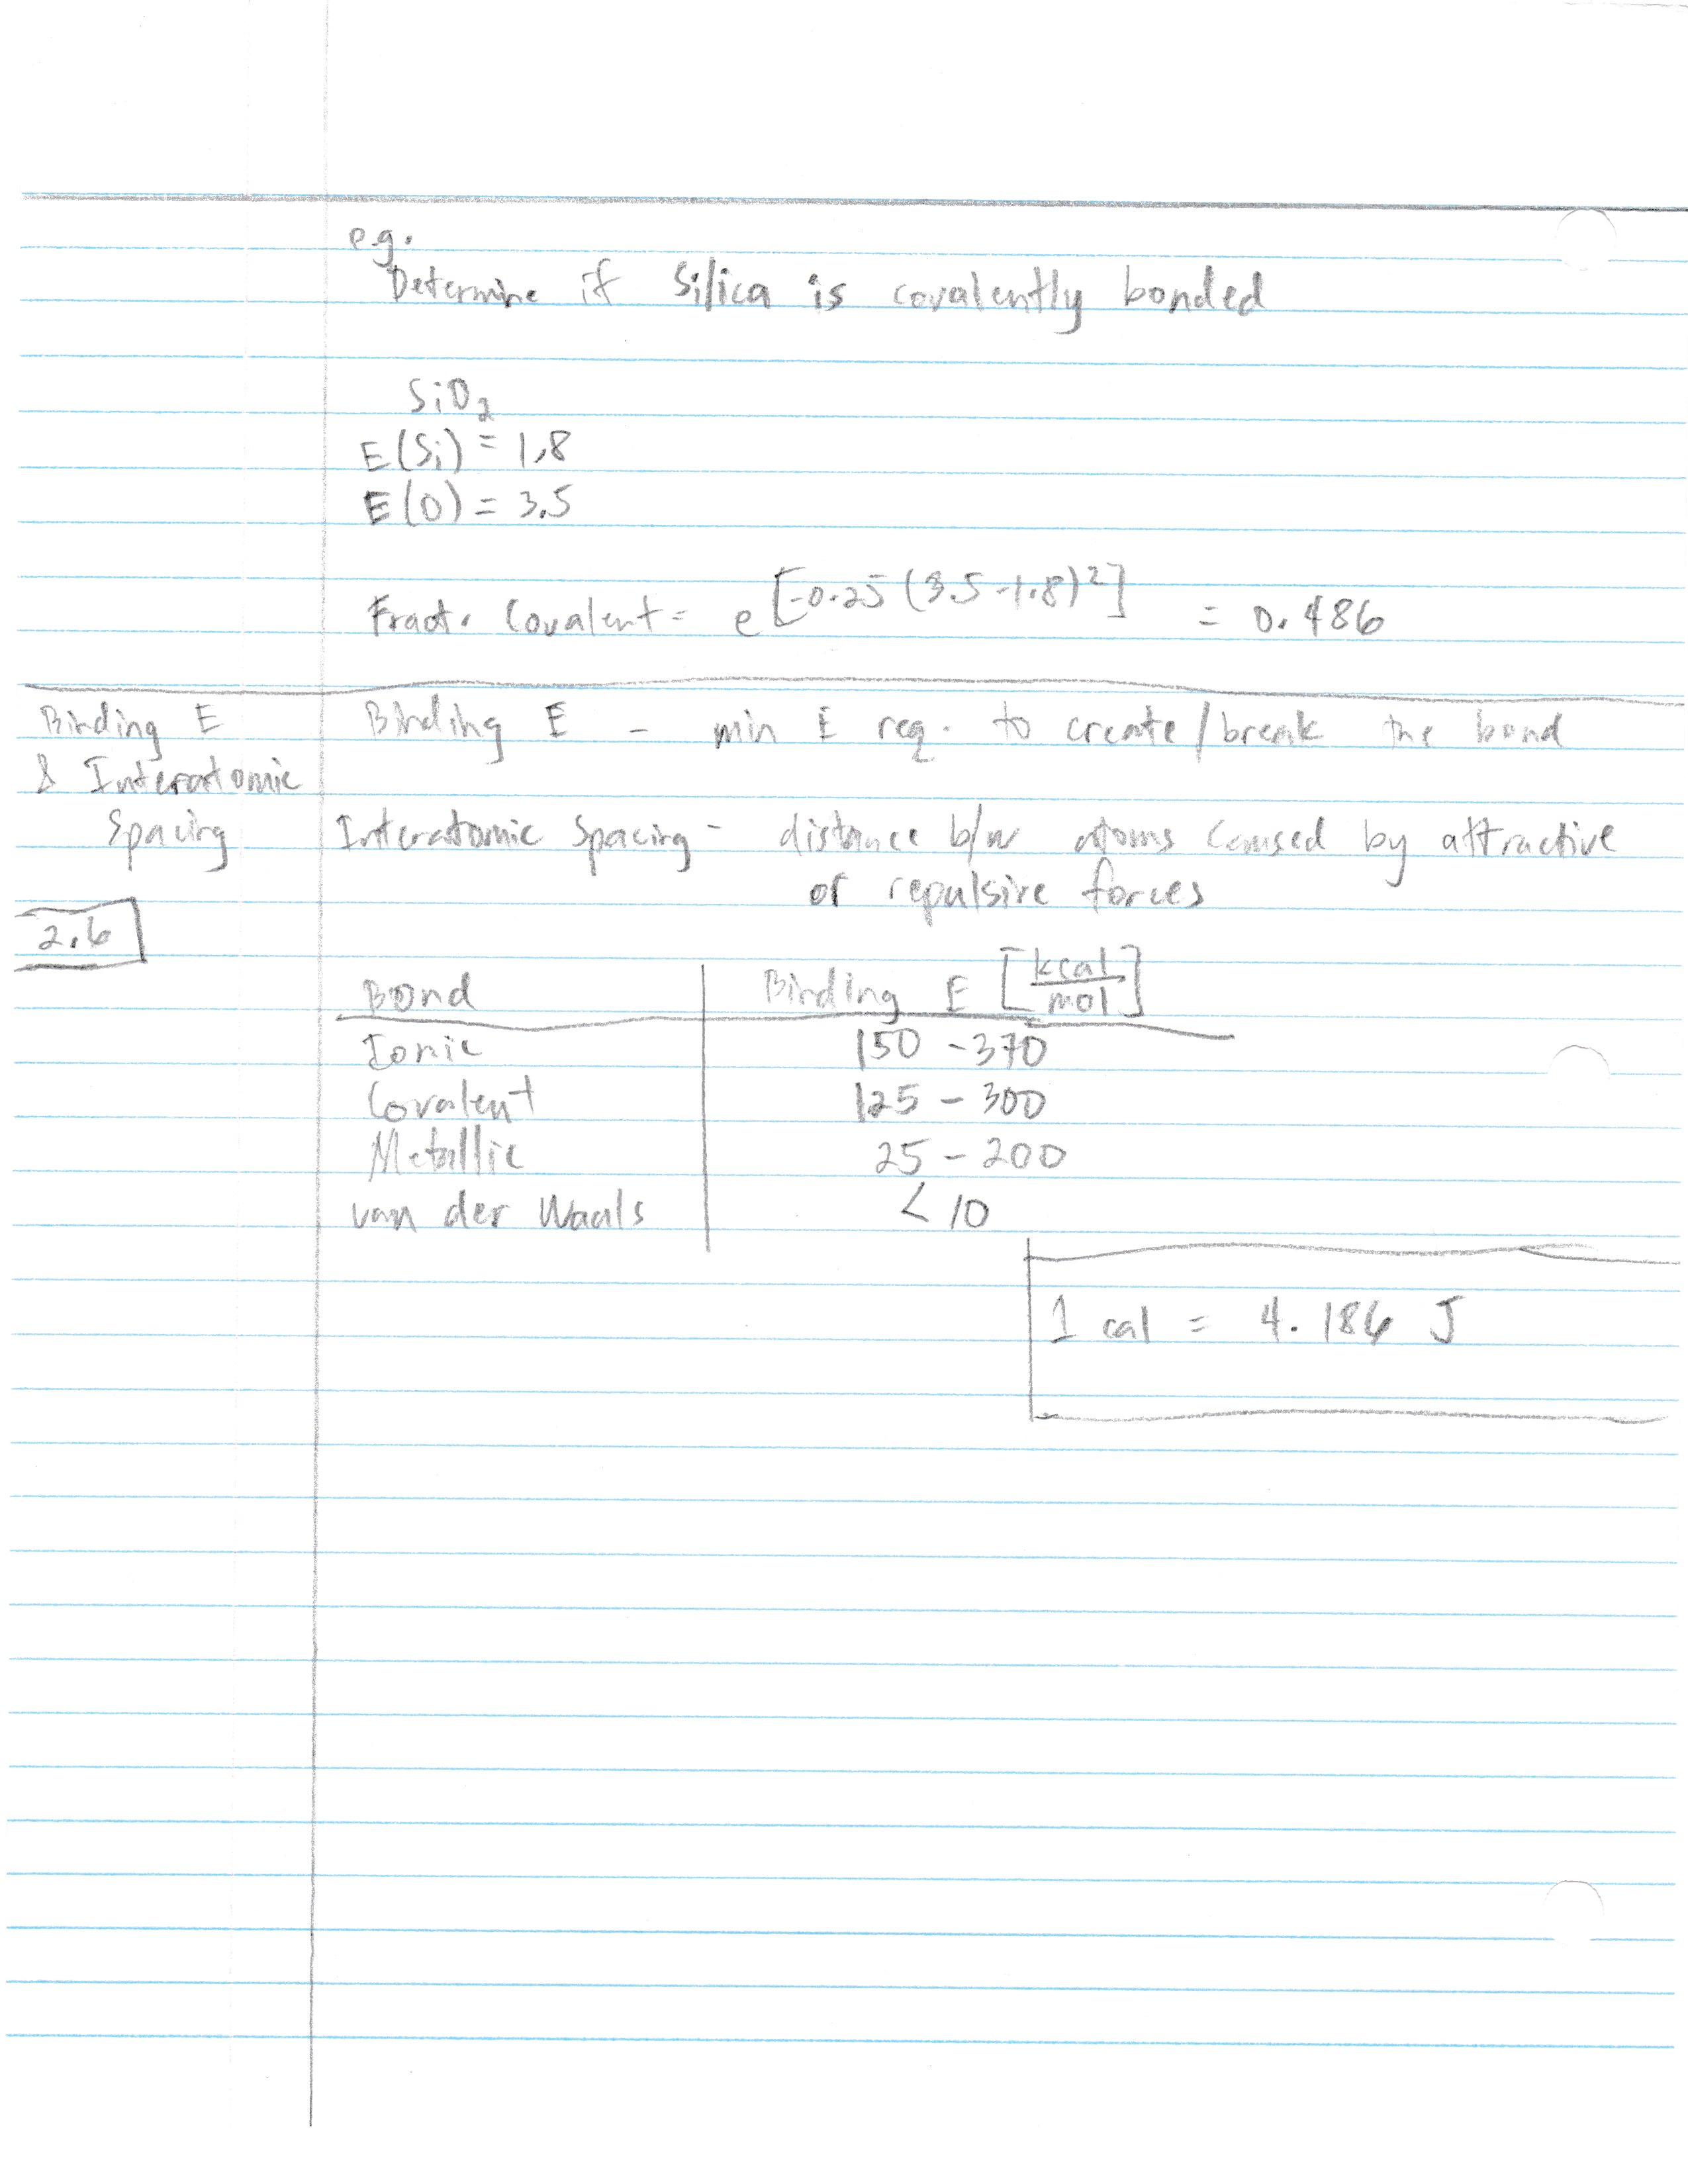 e.g.
Determine if Silica is covalently bonded
SiO2
E(Si) = 1.8
E(O) = 3.5
Fract. Covalent = e^[-0.25(3.5-1.8)^2] = 0.486
Binding E
& Interatomic
Spacing
2.6
Binding E - min E req. to create/break the bond
Interatomic Spacing - distance b/w atoms caused by attractive
or repulsive forces
Bond Binding E [kcal/mol]
Ionic 150 - 370
Covalent 125 - 300
Metallic 25 - 200
van der Waals < 10
1 cal = 4.186 J